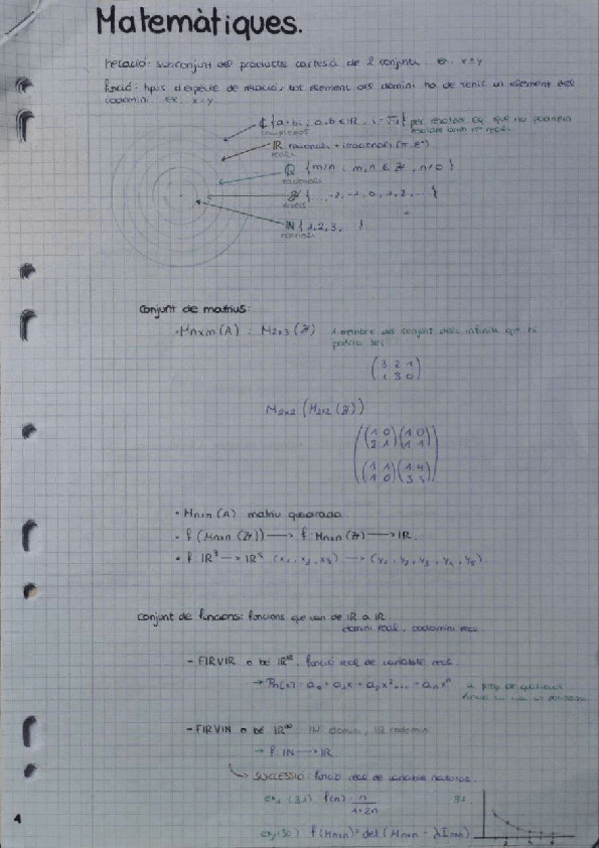 Matemàtiques.
relació: subconjunt del producte cartesià de 2 conjunts. ex. x≤y
funció: tipus d'espècie de relació; tot element del domini ha de tenir un element del
codomini. ex. x=y
ℂ {a+bi ; a,b ∈ ℝ, i=√-1} per resoldre eq que no podríem
ℝ racionals + irracionals (π, e)
reals
ℚ {m/n ; m,n ∈ ℤ, n≠0}
racionals
ℤ {..., -2, -1, 0, 1, 2, ...}
enters
ℕ {1,2,3, }
naturals
Conjunt de matrius:
• Mnxm (A) : M2x3 (ℤ) 1 membre del conjunt infinit que hi
podria ser
(3 2 1)
(1 3 0)
M2x2 (M2x2 (ℤ))
(1 0) (1 0)
(2 1) (1 1)
(1 1) (1 4)
(1 0) (3 )
• Mnxn (A) matriu quadrada.
• f (Mnxn (ℤ)) → f: Mnxn (ℤ) → ℝ
• f ℝ³ → ℝ⁵ (x₁, x₂, x₃) → (y₁, y₂, y₃, y₄, y₅)
Conjunt de funcions: funcions que van de ℝ a ℝ.
domini real, codomini real
- FIRVIR o bé ℝ^ℝ. funció real de variable real.
→ Pn(x) = a₀ + a₁x + a₂x² ... + aₙxⁿ
- FIRVIN o bé ℝ^ℕ: ℕ domini, ℝ codomini
→ f: ℕ → ℝ
SUCCESSIÓ: funció real de variable natural.
f(n) = n
1+2n
f(Mnxn) = det (Mnxn - λInxn)
2 4 6
1